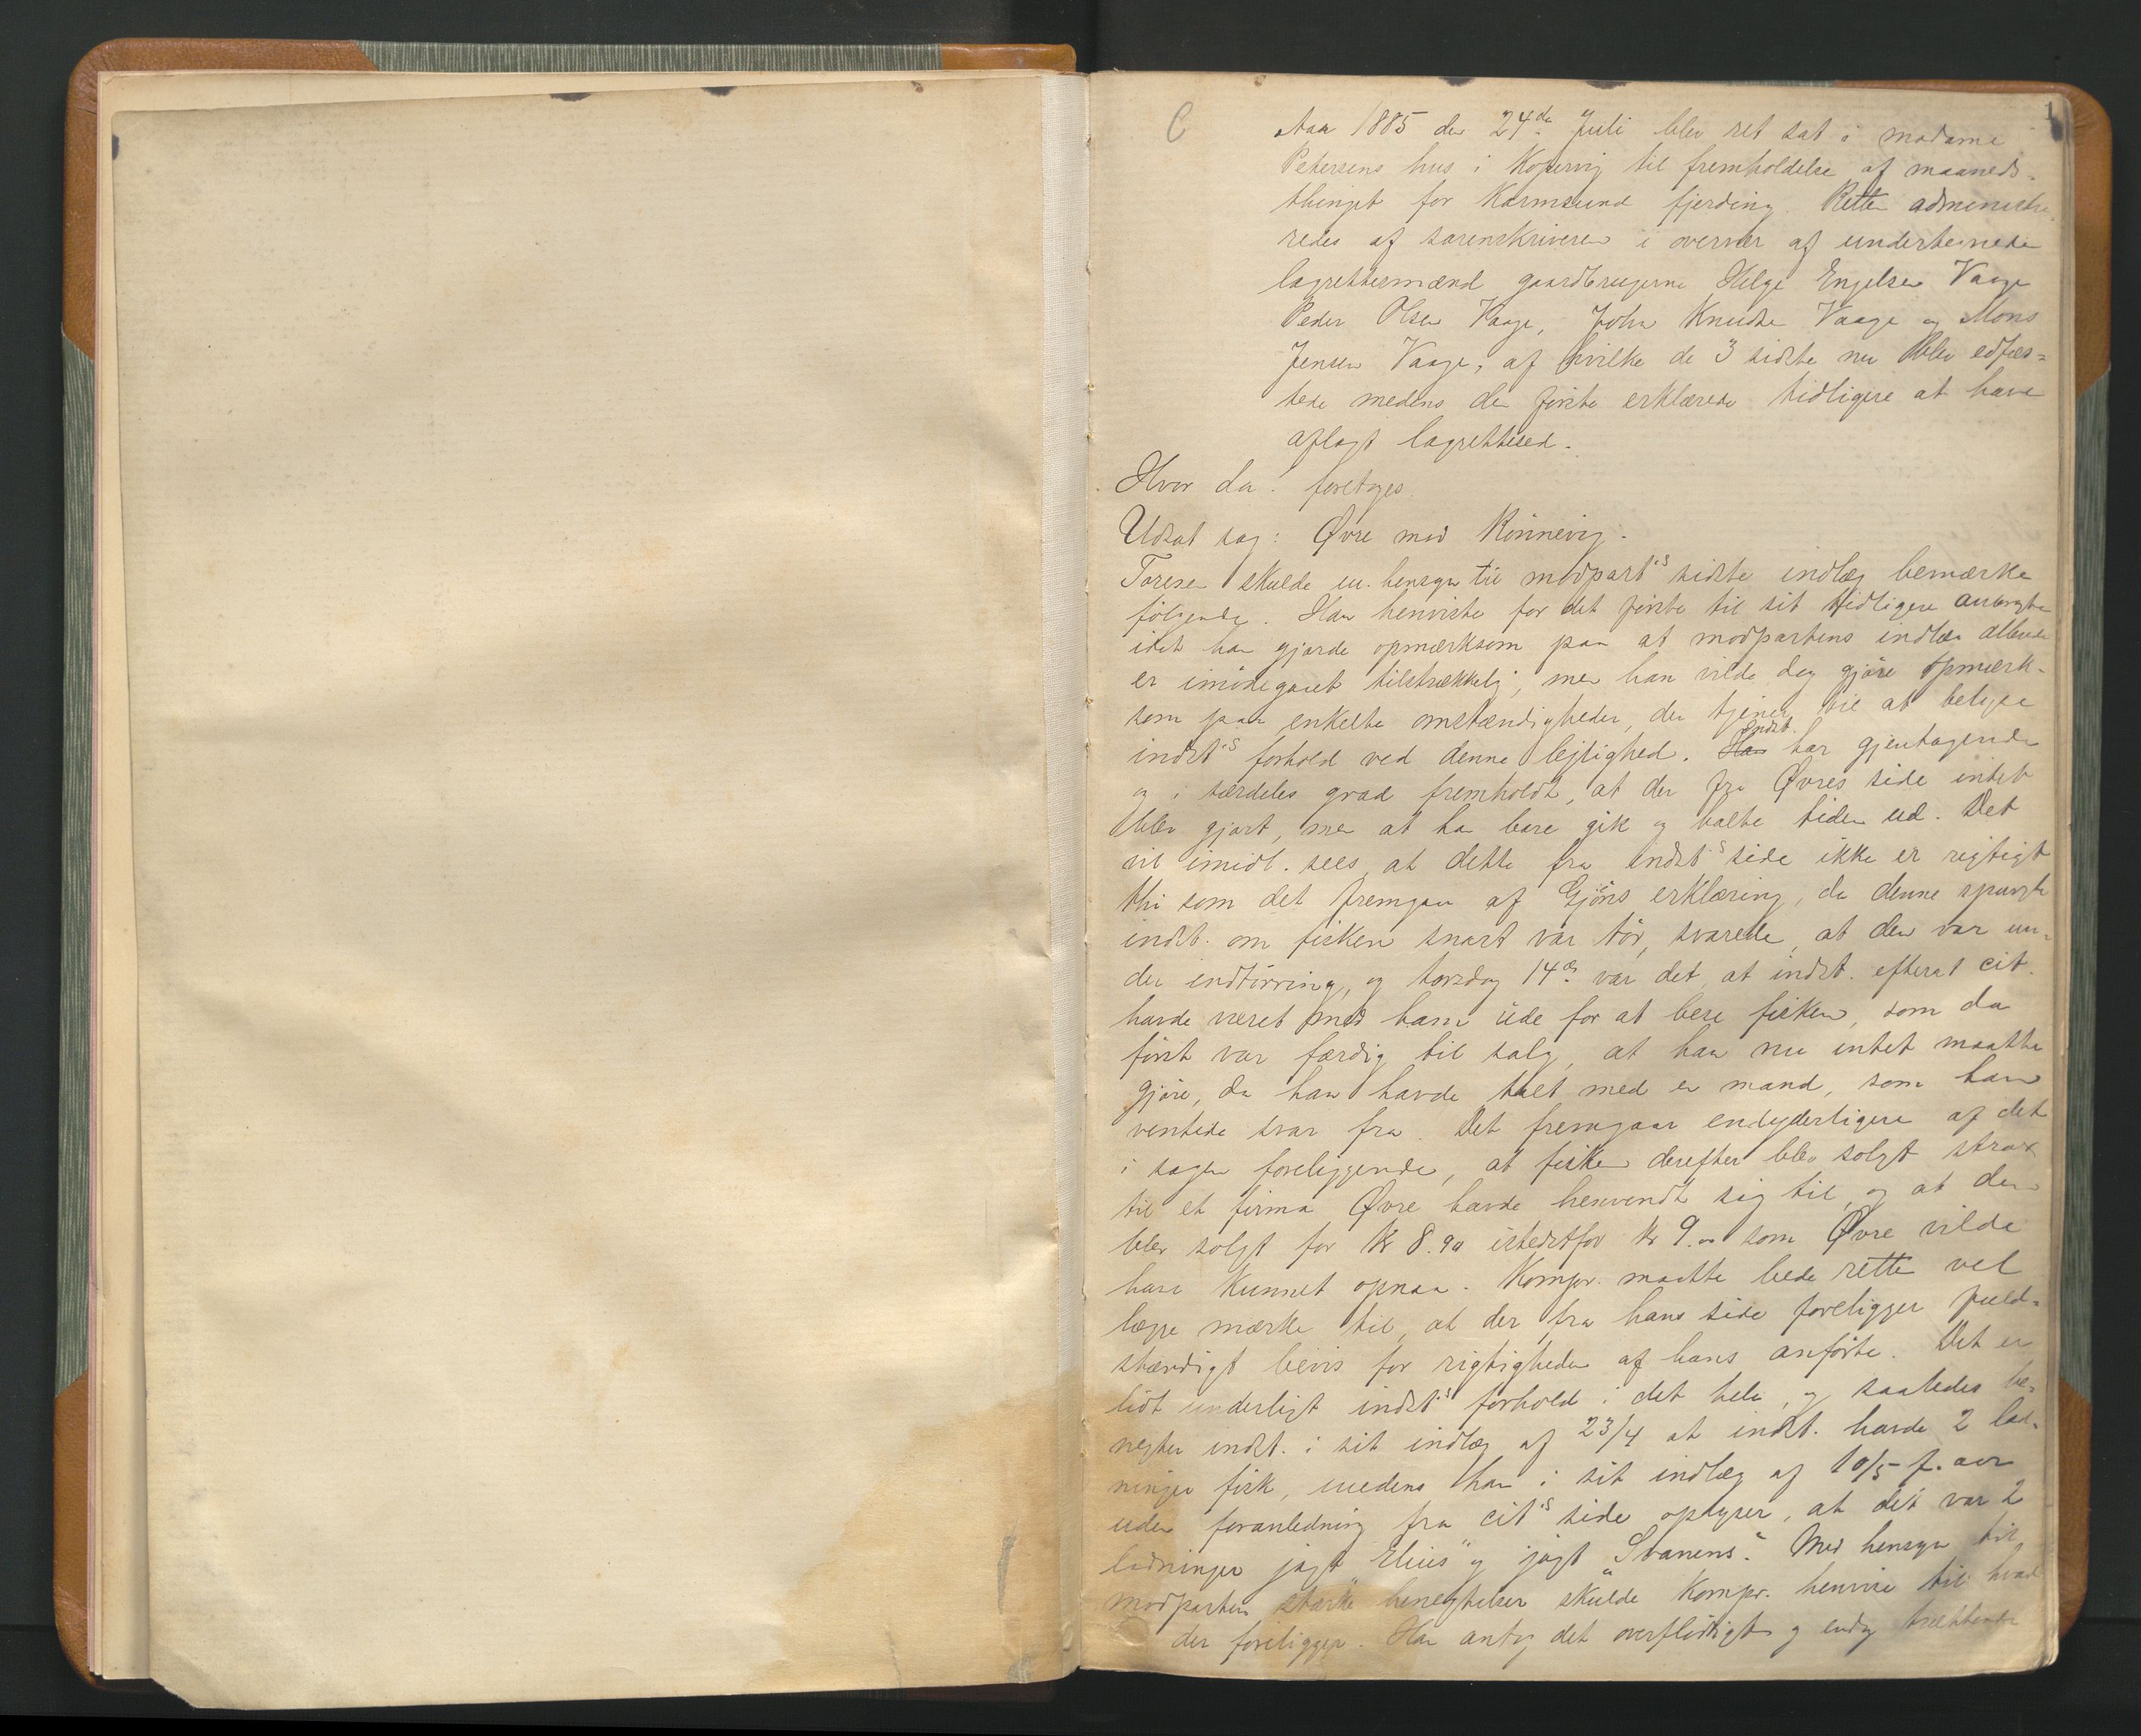 C
1
Aar 1885 den 24de Juli blev ret sat i madame
Petersens hus i Kopervig til fremholdelse af maaneds-
thinget for Karmsund fjerding. Retten administre-
redes af sorenskriveren i overvær af undertegnede
lagrettesmænd gaardbrugerne Helge Engelsen Vaage
Peder Olsen Vaage, John Knudsen Vaage og Mons
Jensen Vaage, af hvilke de 3 sidste nu blev edfæs-
tede medens den første erklærede tidligere at have
aflagt lagrettesed.
Hvor da: foretoges
Udsat sag: Øvre mod Rønnevig.
Toresen skulde m. hensyn til modpart's sidste indlæg bemærke
følgende. Han henviste for det første til sit tidligere anbragte
idet han gjorde opmærksom paa at modpartens indlæg allerede
er imødegaaet tilstrækkelig, men han vilde dog gjøre opmærk-
som paa enkelte omstændigheder, der tjener til at belyse
indst's forhold ved denne lejlighed. Han Indst. har gjentagende
og i særdeles grad fremholdt, at der fra Øvres side intet
blev gjort, men at han bare gik og halte tiden ud. Det
vil imidl. sees, at dette fra indst's side ikke er rigtigt
thi som det fremgaar af Gjøns erklæring, da denne spurgte
indst. om fisken snart var tør, svarede, at den var un-
der indtørring, og torsdag 14de var det, at indst. efterat cit.
havde været med ham ude for at bese fisken, som da
først var færdig til salg, at han nu intet maatte
gjøre, da han havde talt med en mand, som han
ventede svar fra. Det fremgaar endyderligere af det
i sagen foreliggende, at fisken derefter blev solgt strax
til et firma Øvre havde henvendt sig til, og at den
blev solgt for Kr 8.90 istedetfor kr 9.00 som Øvre vilde
have kunnet opnaa. Kompr. maatte bede retten vel
lægge mærke til, at der fra hans side foreligger fuld-
stændigt bevis for rigtigheden af hans anførte. Det er
lidt underligt indst's forhold i det hele, og saaledes be-
negter indst. i sit indlæg af 23/4 at indst. havde 2 lad-
ninger fisk, medens han i sit indlæg af 10/5 f. aar
uden foranledning fra cit's side oplyser, at det var 2
ladninger jagt "Elius" og jagt "Svanens". Med hensyn til
modparten stærke benegtelser skulde Kompr. henvise til hvad
der foreligger. Han antog det overflødigt og endog trættende